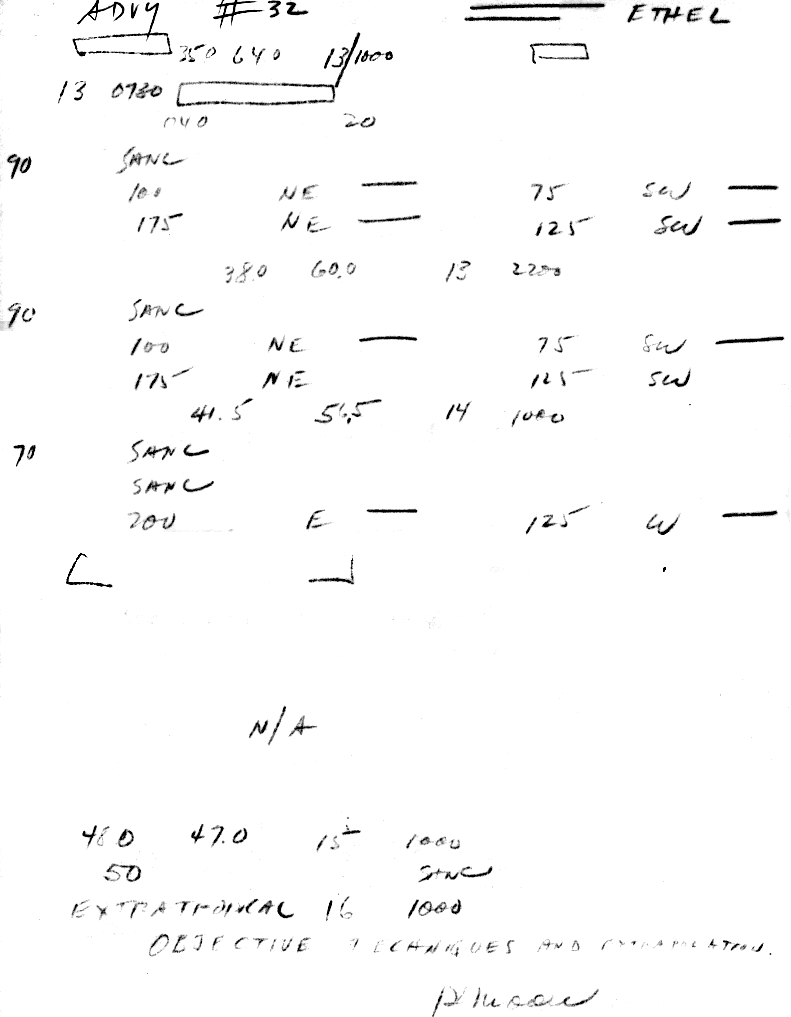 ADVY #32 ETHEL
350 640 13/1000
13 0730
040 20
90 SANC
100 NE 75 SW
175 NE 125 SW
38.0 60.0 13 2200
90 SANC
100 NE 75 SW
175 NE 125 SW
41.5 14 1000
70 SANC
SANC
200 E 125 W
N/A
480 47.0 15 1000
50 SANC
EXTRATROPICAL 16 1000
OBJECTIVE TECHNIQUES AND EXTRAPOLATION.